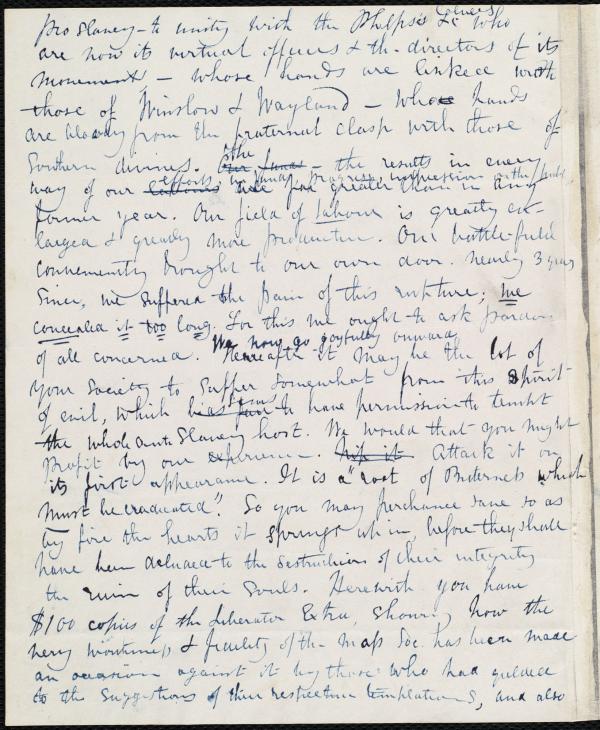 pro slavery - to unity with the Phelps's &c who
are now its virtual officers & the directors of its
movements, - whose hands are linked with
those of Winslow & Wayland - whose hands
are bloody from the fraternal clasp with those of
Southern divines. the - the results in every
way of our efforts, in funds, progress, impression on the public, are far greater than in any
former year. Our field of labour is greatly en-
larged & greatly more productive. Our battle-field
conveniently brought to our own door. nearly 3 years
since, we suffered the pain of this rupture; we
concealed it too long. For this we ought to ask pardon
of all concerned. We now go joyfully onward
Hereafter it may be the lot of
your Society to suffer somewhat from this spirit
of evil, which seems to have permission to tempt
the whole anti Slavery host. We would that you might
profit by our experience. Attack it on
its first appearance. It is a "root of bitterness which
must be eradicated". So you may perchance save so as
by fire the hearts it springs up in, before they shall
have been deluded to the destruction of their integrity
the ruin of their souls. Herewith you have
$100 copies of the Liberator Extra, showing how the
very worthiness & fidelity of the Mass Soc. has been made
an occasion against it by those who had yielded
to the suggestions of their respective temptations, and also